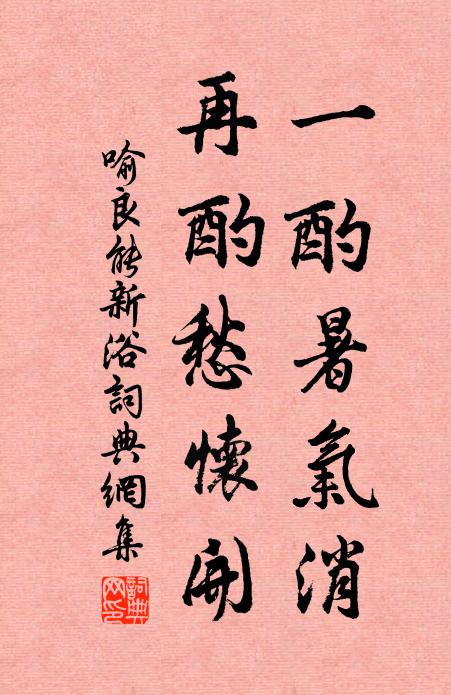 一酌暑氣消
再酌愁懷開
喻良能新浴詞典網集
詞典網印